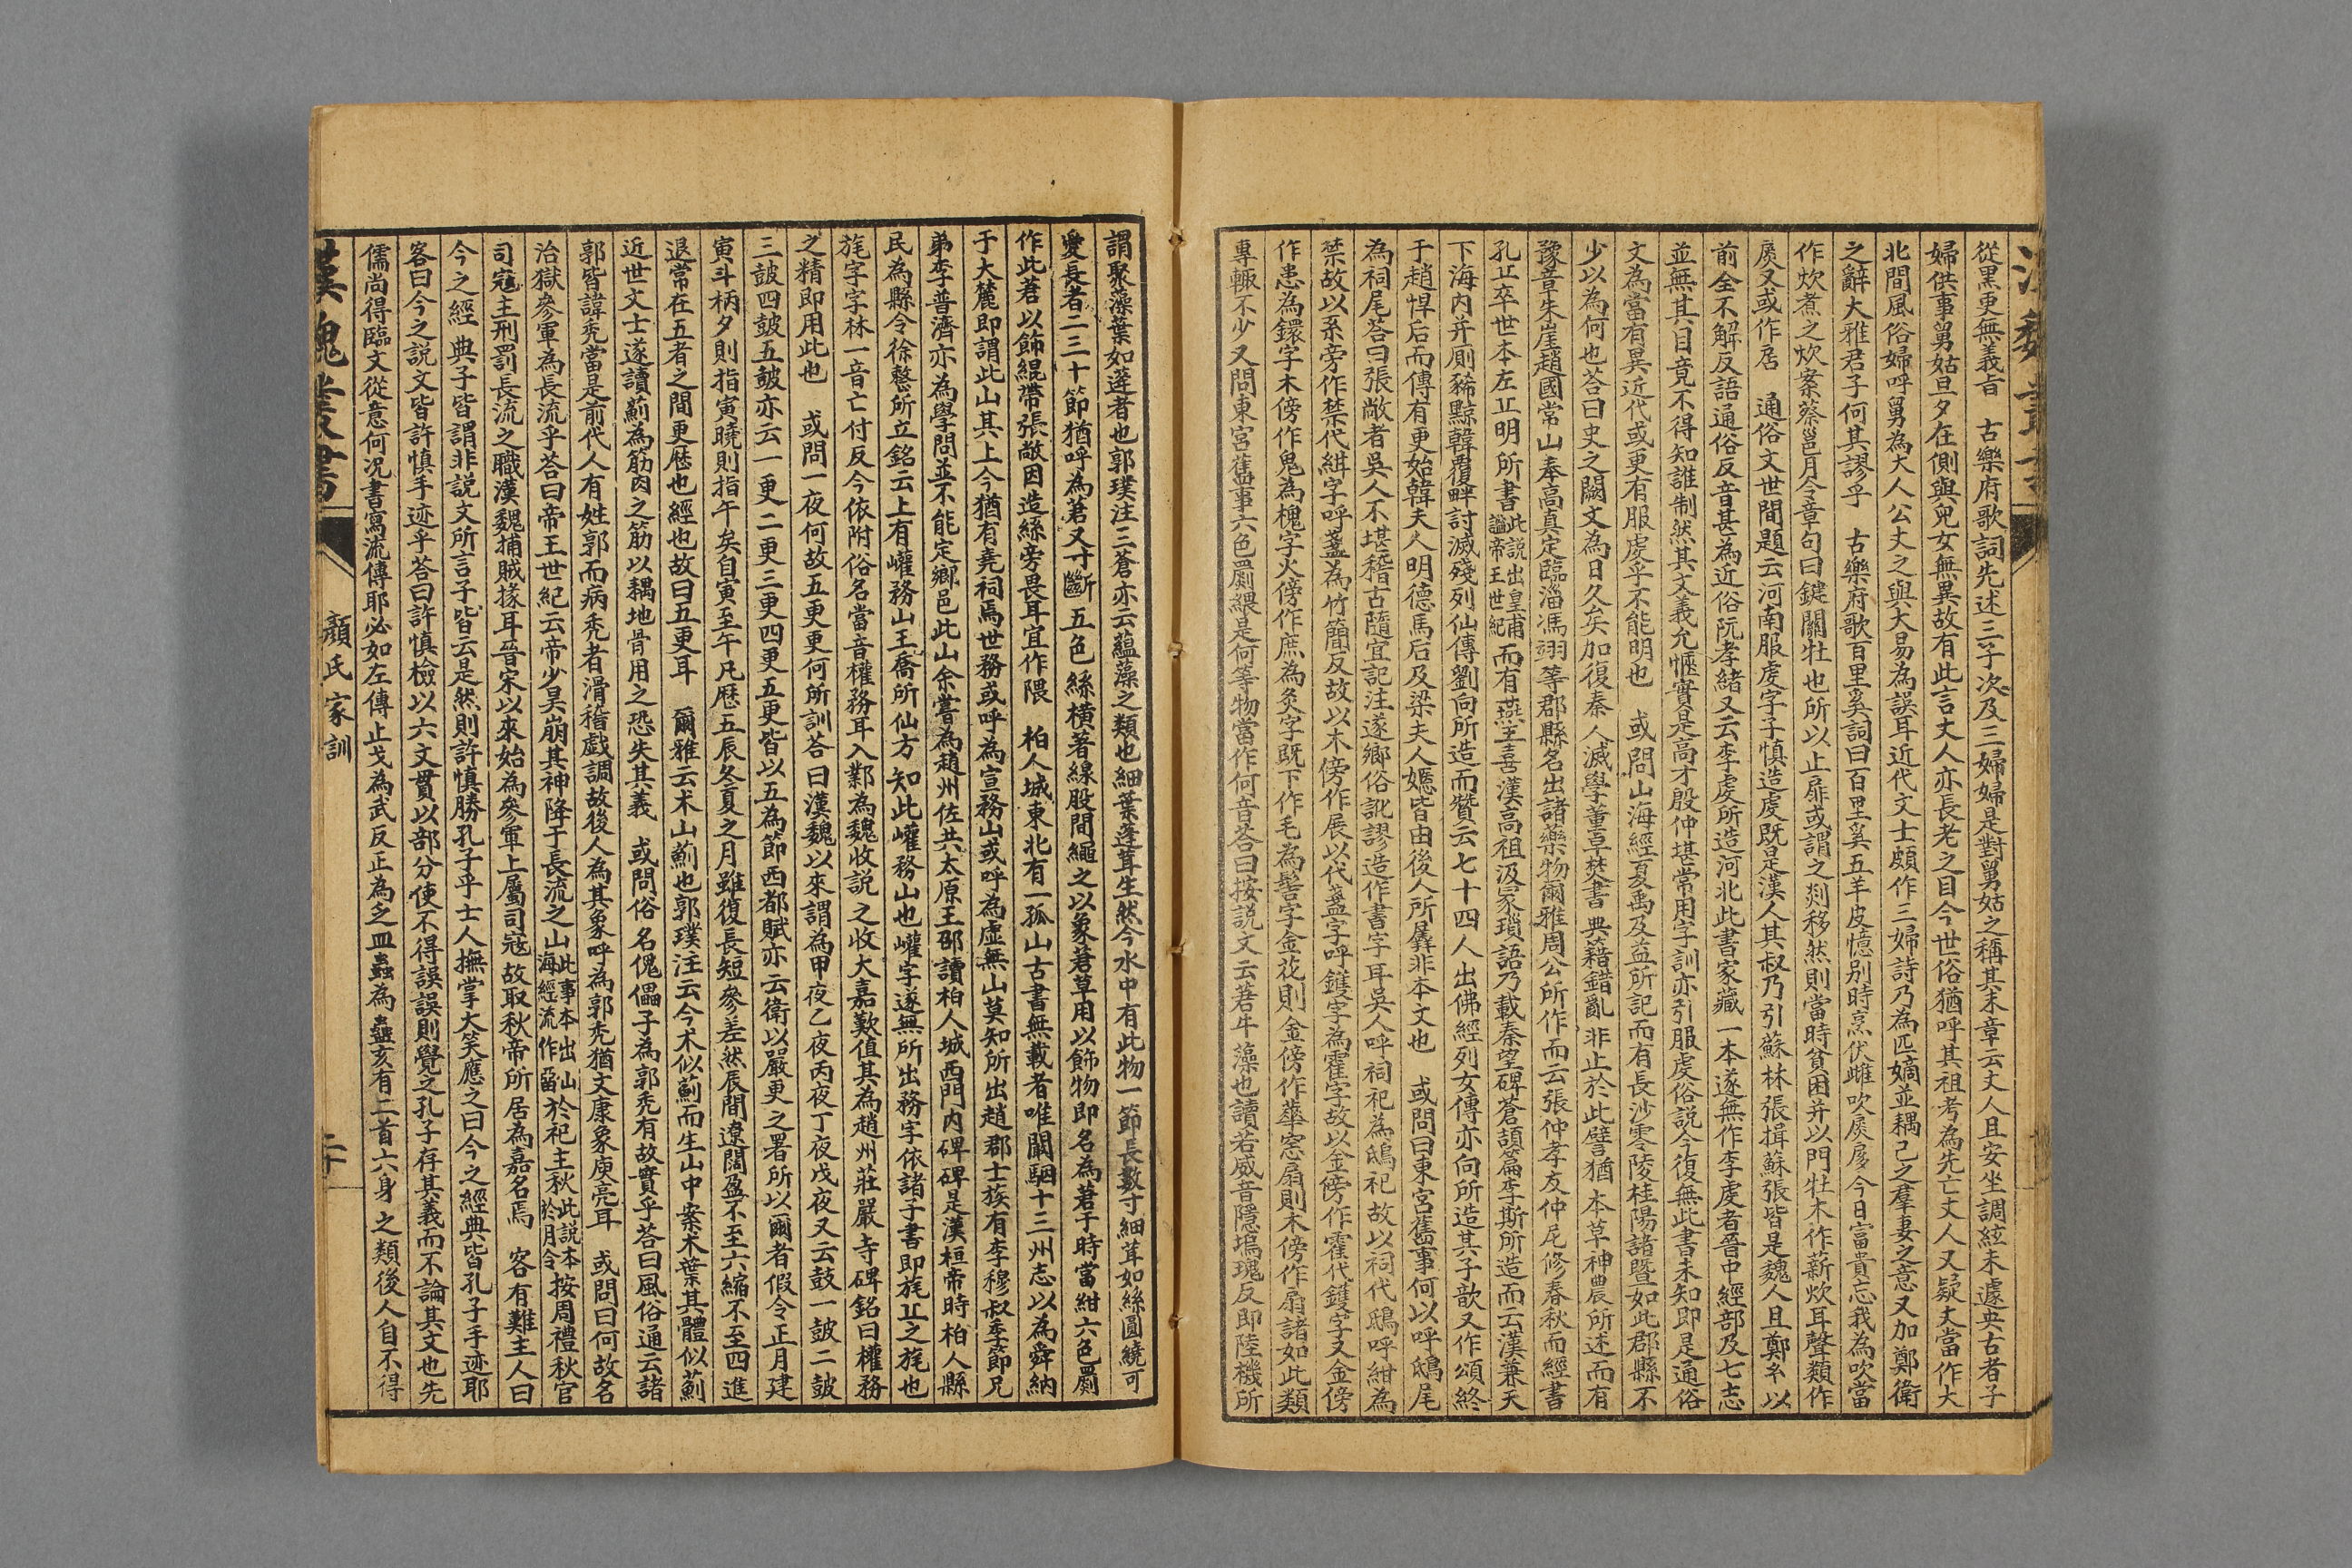 從黑更無義旨　古樂府歌詞先述三子次及三婦婦是對舅姑之稱其末章云丈人且安坐調絃未遽央古者子
婦供事舅姑旦夕在側與兒女無異故有此言丈人亦長老之目今世俗猶呼其祖考為先亡丈人又疑丈當作大
北間風俗婦呼舅為大人公丈之與大易為誤耳近代文士頗作三婦詩乃為匹嫡並耦己之羣妻之意又加鄭衛
之辭大雅君子何其謬乎　古樂府歌百里奚詞曰百里奚五羊皮憶別時烹伏雌吹扊扅今日富貴忘我為吹當
作炊煮之炊案蔡邕月令章句曰鍵關牡也所以止扉或謂之剡移然則當時貧困并以門牡木作薪炊耳聲類作
扊又或作扂　通俗文世間題云河南服虔字子慎造虔既是漢人其叔乃引蘇林張揖蘇張皆是魏人且鄭玄以
前全不解反語通俗反音甚為近俗阮孝緒又云李虔所造河北此書家藏一本遂無作李虔者晉中經部及七志
並無其目竟不得知誰制然其文義允愜實是高才殷仲堪常用字訓亦引服虔俗說今復無此書未知即是通俗
文為當有異近代或更有服虔乎不能明也　或問山海經夏禹及益所記而有長沙零陵桂陽諸暨如此郡縣不
少以為何也荅曰史之闕文為日久矣加復秦人滅學董卓焚書典籍錯亂非止於此譬猶本草神農所述而有
豫章朱崖趙國常山奉高真定臨淄馮翊等郡縣名出諸藥物爾雅周公所作而云張仲孝友仲尼修春秋而經書
孔丘卒世本左丘明所書此說出皇甫謐帝王世紀而有燕王喜漢高祖汲冢瑣語乃載秦望碑蒼頡篇李斯所造而云漢兼天
下海內并厠豨黥韓覆畔討滅殘列仙傳劉向所造而贊云七十四人出佛經列女傳亦向所造其子歆又作頌終
于趙悼后而傳有更始韓夫人明德馬后及梁夫人嫕皆由後人所羼非本文也　或問曰東宮舊事何以呼鴟尾
為祠尾荅曰張敞者吳人不甚稽古隨宜記注遂鄉俗訛謬造作書字耳吳人呼祠祀為鴟祀故以祠代鴟呼紺為
禁故以糸旁作禁代紺字呼盞為竹簡反故以木傍作展以代盞字呼鑊字為霍字故以金傍作霍代鑊字又金傍
作患為鐶字木傍作鬼為槐字火傍作庶為炙字既下作毛為髻字金花則金傍作華窓扇則木傍作扇諸如此類
專輙不少又問東宮舊事六色罽緹是何等物當作何音荅曰按說文云莙牛藻也讀若威音隱塢瑰反即陸機所
謂聚藻葉如蓬者也郭璞注三蒼亦云蘊藻之類也細葉蓬茸生然今水中有此物一節長數寸細茸如絲圓繞可
愛長者二三十節猶呼為莙又寸斷五色絲橫著線股間繩之以象莙草用以飾物即名為莙于時當紺六色罽
作此莙以飾緄帶張敞因造絲旁畏耳宜作隈　柏人城東北有一孤山古書無載者唯闞駰十三州志以為舜納
于大麓即謂此山其上今猶有堯祠焉世務或呼為宣務山或呼為虛無山莫知所出趙郡士族有李穆叔季節兄
弟李普濟亦為學問並不能定鄉邑此山余嘗為趙州佐共太原王邵讀柏人城西門內碑碑是漢桓帝時柏人縣
民為縣令徐整所立銘云上有巏務山王喬所仙方知此巏務山也巏字遂無所出務字依諸字書即旄丘之旄也
旄字字林一音亡付反今依附俗名當音權務耳入鄴為魏收說之收大嘉歎值其為趙州莊嚴寺碑銘曰權務
之精即用此也　或問一夜何故五更更何所訓荅曰漢魏以來謂為甲夜乙夜丙夜丁夜戊夜又云鼓一皷二皷
三皷四皷五皷亦云一更二更三更四更五更皆以五為節西都賦亦云衛以嚴更之署所以爾者假令正月建
寅斗柄夕則指寅曉則指午矣自寅至午凡歷五辰冬夏之月雖復長短參差然辰間遼闊盈不至六縮不至四進
退常在五者之間更歷也經也故曰五更耳　爾雅云朮山薊也郭璞注云今朮似薊而生山中案朮葉其體似薊
近世文士遂讀薊為筋肉之筋以耦地骨用之恐失其義　或問俗名傀儡子為郭禿有故實乎荅曰風俗通云諸
郭皆諱禿當是前代人有姓郭而病禿者滑稽戲調故後人為其象呼為郭禿猶文康象庾亮耳　或問曰何故名
治獄參軍為長流乎荅曰帝王世紀云帝少昊崩其神降于長流之山此事本出山海經流作留於祀主秋此說本於月令按周禮秋官
司寇主刑罰長流之職漢魏捕賊掾耳晉宋以來始為參軍上屬司寇故取秋帝所居為嘉名焉　客有難主人曰
今之經典子皆謂非說文所言子皆云是然則許慎勝孔子乎士人撫掌大笑應之曰今之經典皆孔子手迹耶
客曰今之說文皆許慎手迹乎荅曰許慎檢以六文貫以部分使不得誤誤則覺之孔子存其義而不論其文也先
儒尚得臨文從意何況書寫流傳耶必如左傳止戈為武反正為乏皿蟲為蠱亥有二首六身之類後人自不得
漢魏叢書
顏氏家訓
二十